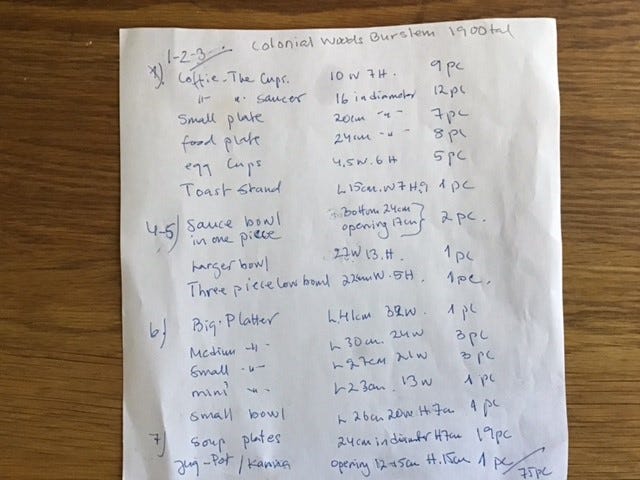 1-2-3 Colonial Woods Burslem 1900tal
Coffie-The Cups. 10 W 7 H. 9 pc
-"- -"- saucer 16 in diameter 12 pc
Small plate 20cm -"- 7 pc
food plate 24cm -"- 8 pc
egg Cups 4,5 W. 6 H 5 pc
Toast Stand L 15cm. W 7 H.9 1 pc
4-5) Sauce bowl Bottom 24cm
in one piece opening 17cm } 2 pc.
Larger bowl 27W 13. H. 1 pc
Three piece low bowl 22cm W. 5 H. 1 pc.
6) Big. Platter L.41cm 32 W. 1 pc
Medium -"- L 30cm. 24 W 3 pc
Small -"- L 27cm 21 W 3 pc
mini -"- L 23cm. 13 W 1 pc
Small bowl L 26cm 20 W H.7cm 1 pc
7) Soup plates 24cm in diameter H7cm 19 pc
Jug-Pot / Kanna opening 12 x 15cm H. 15cm 1 pc / 75 pc